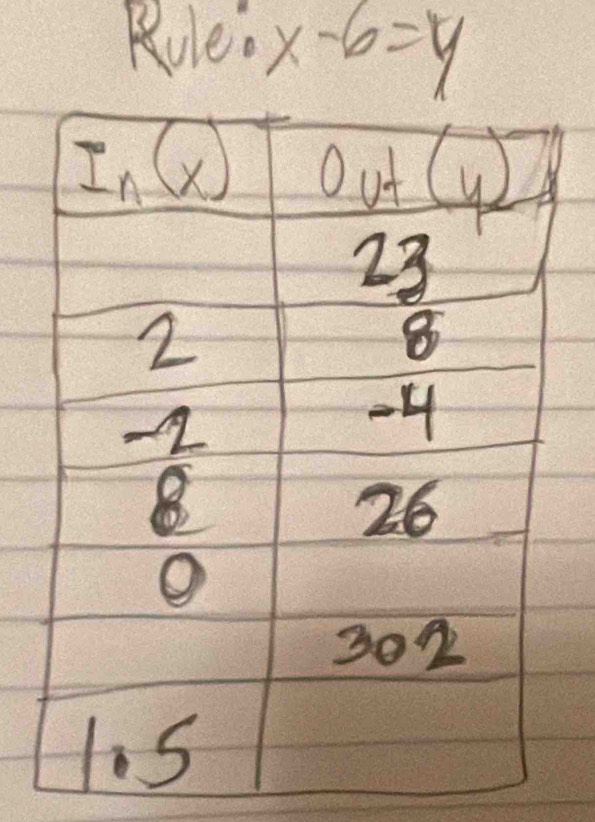 Rule: x-6=y
In (x) Out (y)
23
2 8
-2 -4
8 26
0
302
1.5